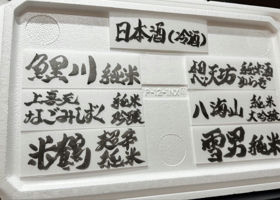 日本酒(冷酒)
鯉川 純米
上喜元 純米吟醸
なごみしずく
米鶴 超辛純米
想天坊 純米酒
八海山 純米大吟醸
雪男 純米